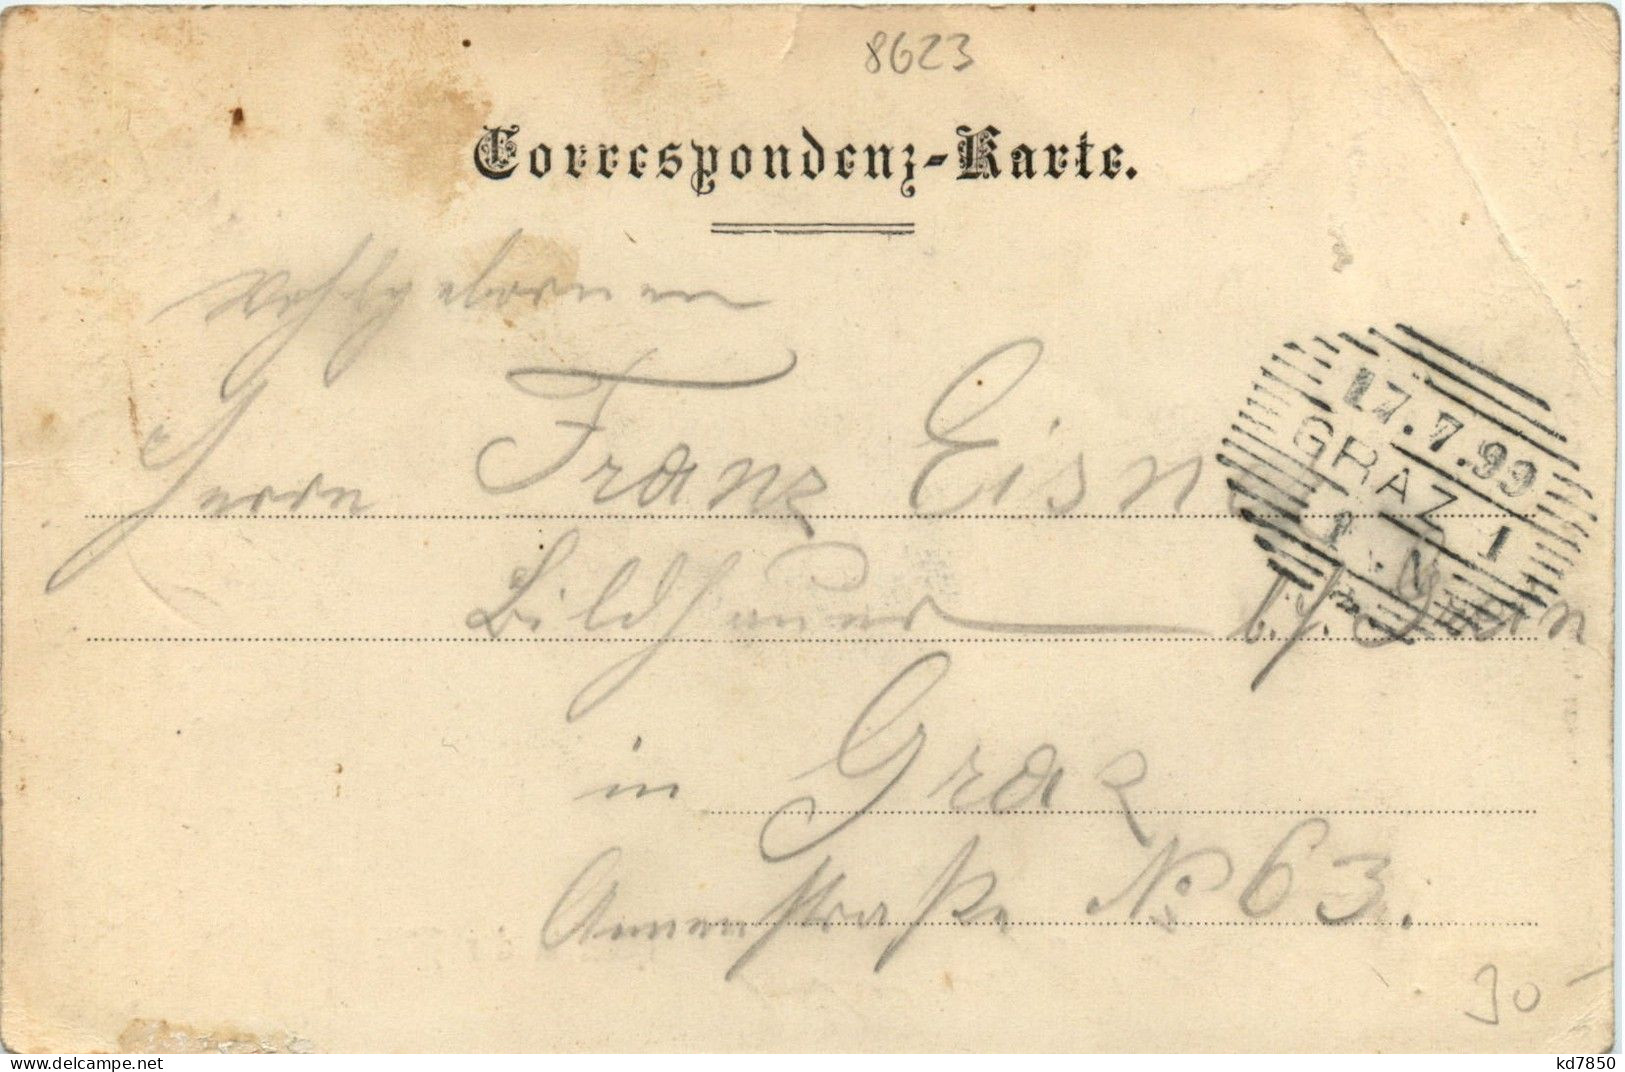 8623
Correspondenz-Karte.
Wohlgebornen
Herrn Franz Eisner
Bildhauer b. H.
in Graz
Annenstraße No 63.
17.7.99
GRAZ 1
30
www.delcampe.net
kd7850